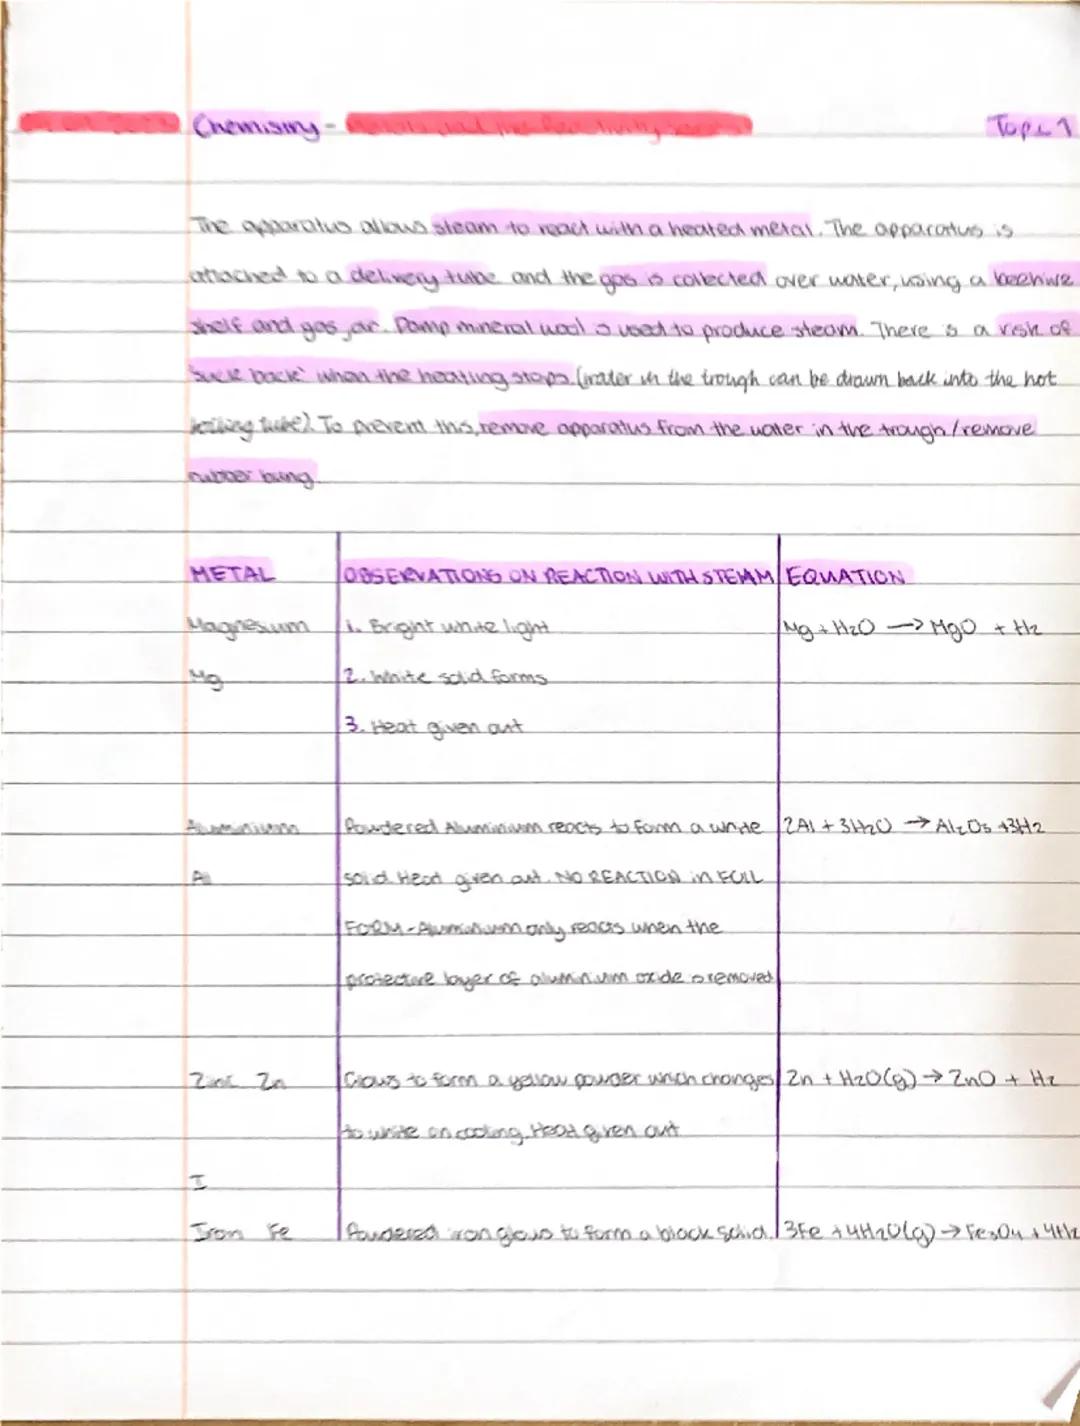 Chemistry -
Topic 1
The apparatus allows steam to react with a heated metal. The apparatus is
attached to a delivery tube and the gas is collected over water, using a beehive
shelf and gas jar. Damp mineral wool is used to produce steam. There is a risk of
'suck back' when the heating stops. (water in the trough can be drawn back into the hot
boiling tube). To prevent this, remove apparatus from the water in the trough / remove
rubber bung.
METAL OBSERVATIONS ON REACTION WITH STEAM EQUATION
Magnesium 1. Bright white light Mg + H2O → MgO + H2
Mg 2. White solid forms
3. Heat given out
Aluminium Powdered Aluminium reacts to form a white 2Al + 3H2O → Al2O3 + 3H2
Al solid. Heat given out. NO REACTION in FOIL
FORM - Aluminium only reacts when the
protective layer of aluminium oxide is removed
Zinc Zn Glows to form a yellow powder which changes Zn + H2O(g) → ZnO + H2
to white on cooling. Heat given out
I
Iron Fe Powdered iron glows to form a black solid. 3Fe + 4H2O(g) → Fe3O4 + 4H2